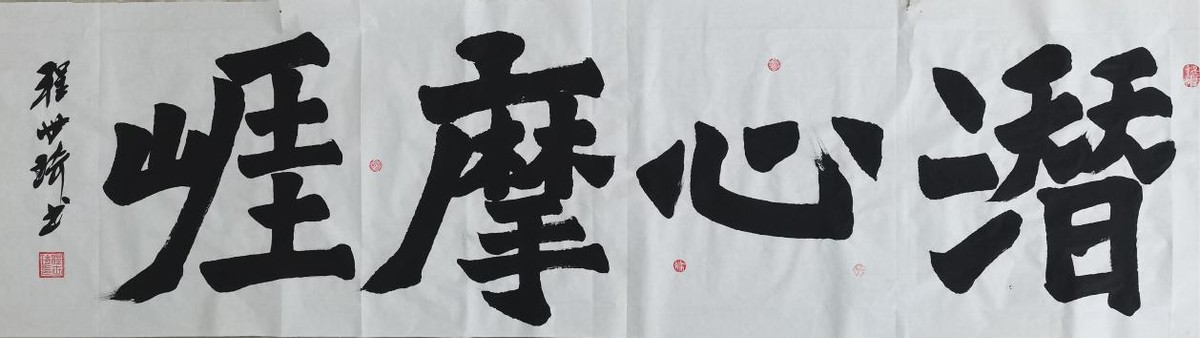 潜心摩崕
程世琦书